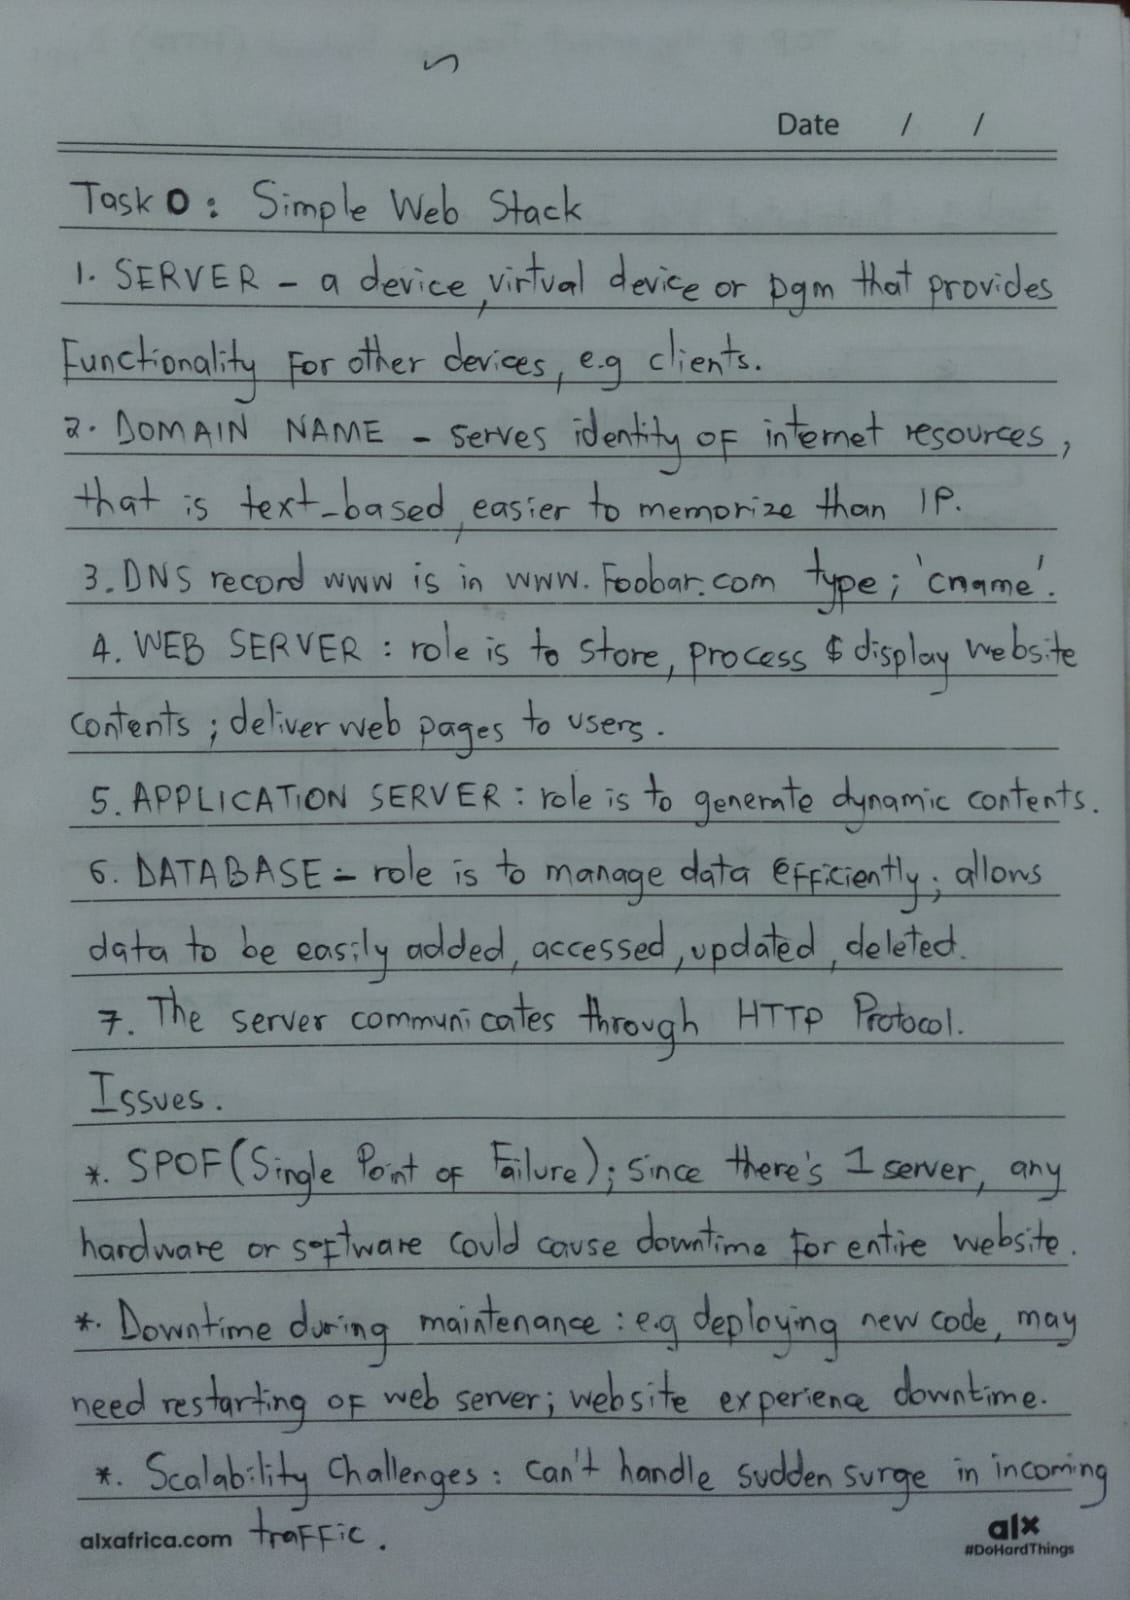 Date / /
Task 0: Simple Web Stack
1. SERVER - a device, virtual device or pgm that provides
Functionality For other devices, e.g clients.
2. DOMAIN NAME - serves identity of internet resources,
that is text-based, easier to memorize than IP.
3. DNS record www is in www.Foobar.com type; 'cname'.
4. WEB SERVER : role is to store, process & display website
contents ; deliver web pages to users.
5. APPLICATION SERVER : role is to generate dynamic contents.
6. DATABASE - role is to manage data efficiently; allows
data to be easily added, accessed, updated, deleted.
7. The server communicates through HTTP Protocol.
Issues.
*. SPOF (Single Point of Failure); Since there's 1 server, any
hardware or software could cause downtime for entire website.
*. Downtime during maintenance : e.g deploying new code, may
need restarting of web server; website experience downtime.
*. Scalability Challenges : can't handle sudden surge in incoming
traffic.
alxafrica.com
alx
#DoHardThings